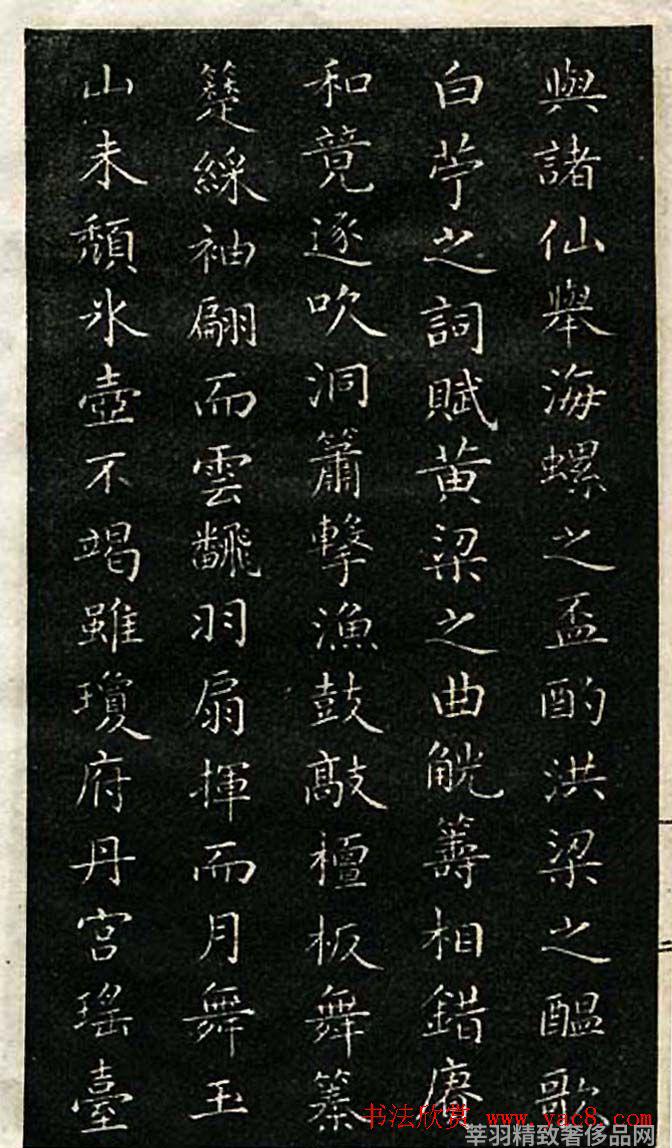 與諸仙舉海螺之盃酌洪梁之醞歌
白苧之詞賦黃梁之曲觥籌相錯賡
和競逐吹洞簫擊漁鼓敲檀板舞纂
綵袖翩而雲飜羽扇揮而月舞玉
山未頹氷壺不竭雖瓊府丹宮瑤臺
书法欣赏 www.yac8.com
莘羽精致奢侈品网